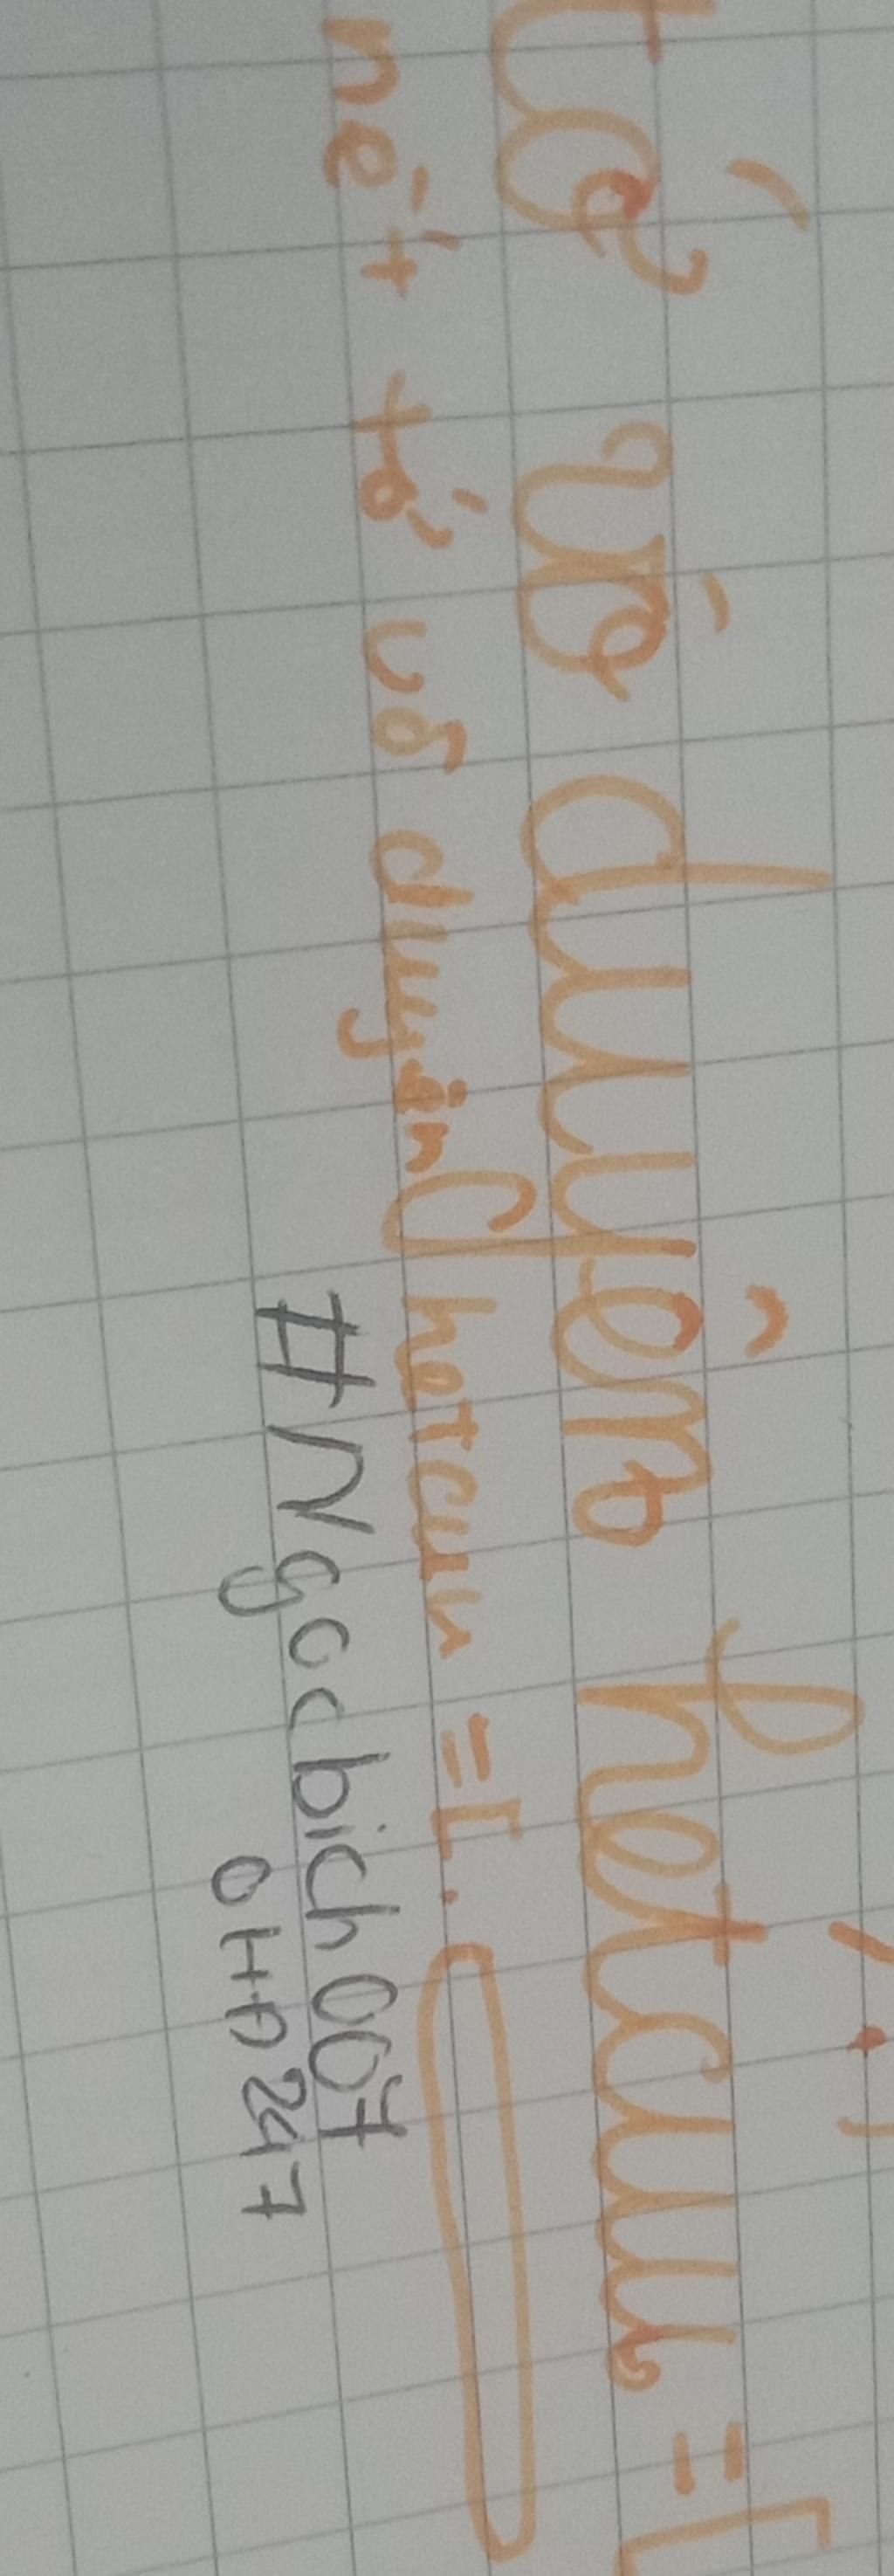 tớ vô duyên hetcuu =[
nét tớ vô duyên hetcuu =[.
#Ngocbich007
OHD247